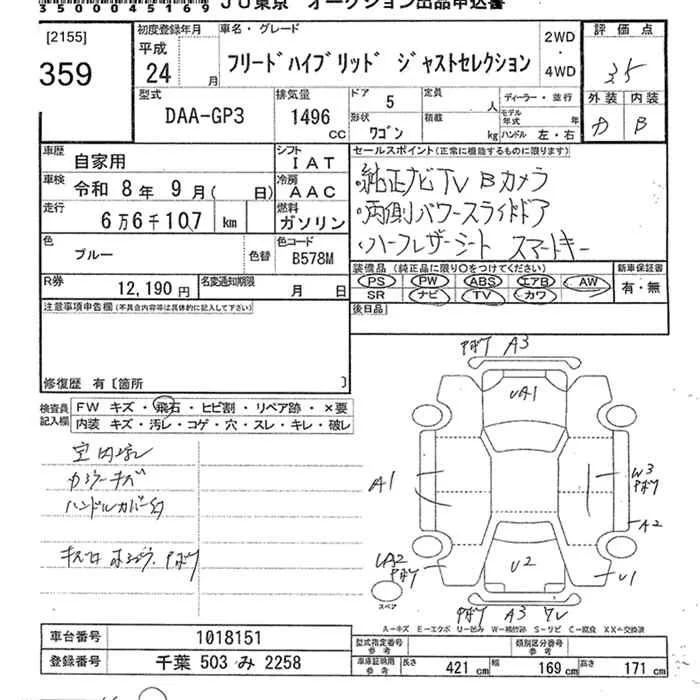 35000045169 JU東京 オークション出品申込書
[2155]
359
初度登録年月
平成
24 月
車名・グレード
フリードハイブリッド ジャストセレクション
2WD
・
4WD
評価点
3.5
外装 内装
B
型式
DAA-GP3
排気量
1496
CC
ドア 5
形状
ワゴン
定員 人
積載 kg
ディーラー・並行
モデル年式 年
ハンドル 左・右
車歴
自家用
シフト
IAT
車検
令和 8年 9月( 日)
冷房
AAC
走行
6万6千107 km
燃料
ガソリン
色
ブルー
色替
色コード
B578M
R券
12,190円
名変通知期限
月 日
セールスポイント(正常に機能するものに限ります)
・純正ナビTV Bカメラ
・両側パワースライドドア
・ハーフレザーシート スマートキー
装備品(純正品に限り○をつけてください)
PS PW ABS エアB AW
SR ナビ TV カワ
新車保証書
有・無
後日品
注意事項申告欄(不具合内容等は具体的に記入して下さい)
修復歴 有〔箇所 〕
検査員記入欄
FW キズ・飛石・ヒビ割・リペア跡・×要
内装 キズ・汚レ・コゲ・穴・スレ・キレ・破レ
ハンドルカバー
A3
UA1
A1
W3
A2
UA2
U2
U1
A3
スペア
A-キズ E-エクボ U-凹み W-補修跡 S-サビ C-腐食 XX-交換済
車台番号
1018151
登録番号
千葉 503 み 2258
型式指定番号
参考
類別区分番号
参考
車庫証明用
参考
長さ 421 cm
幅 169 cm
高さ 171 cm